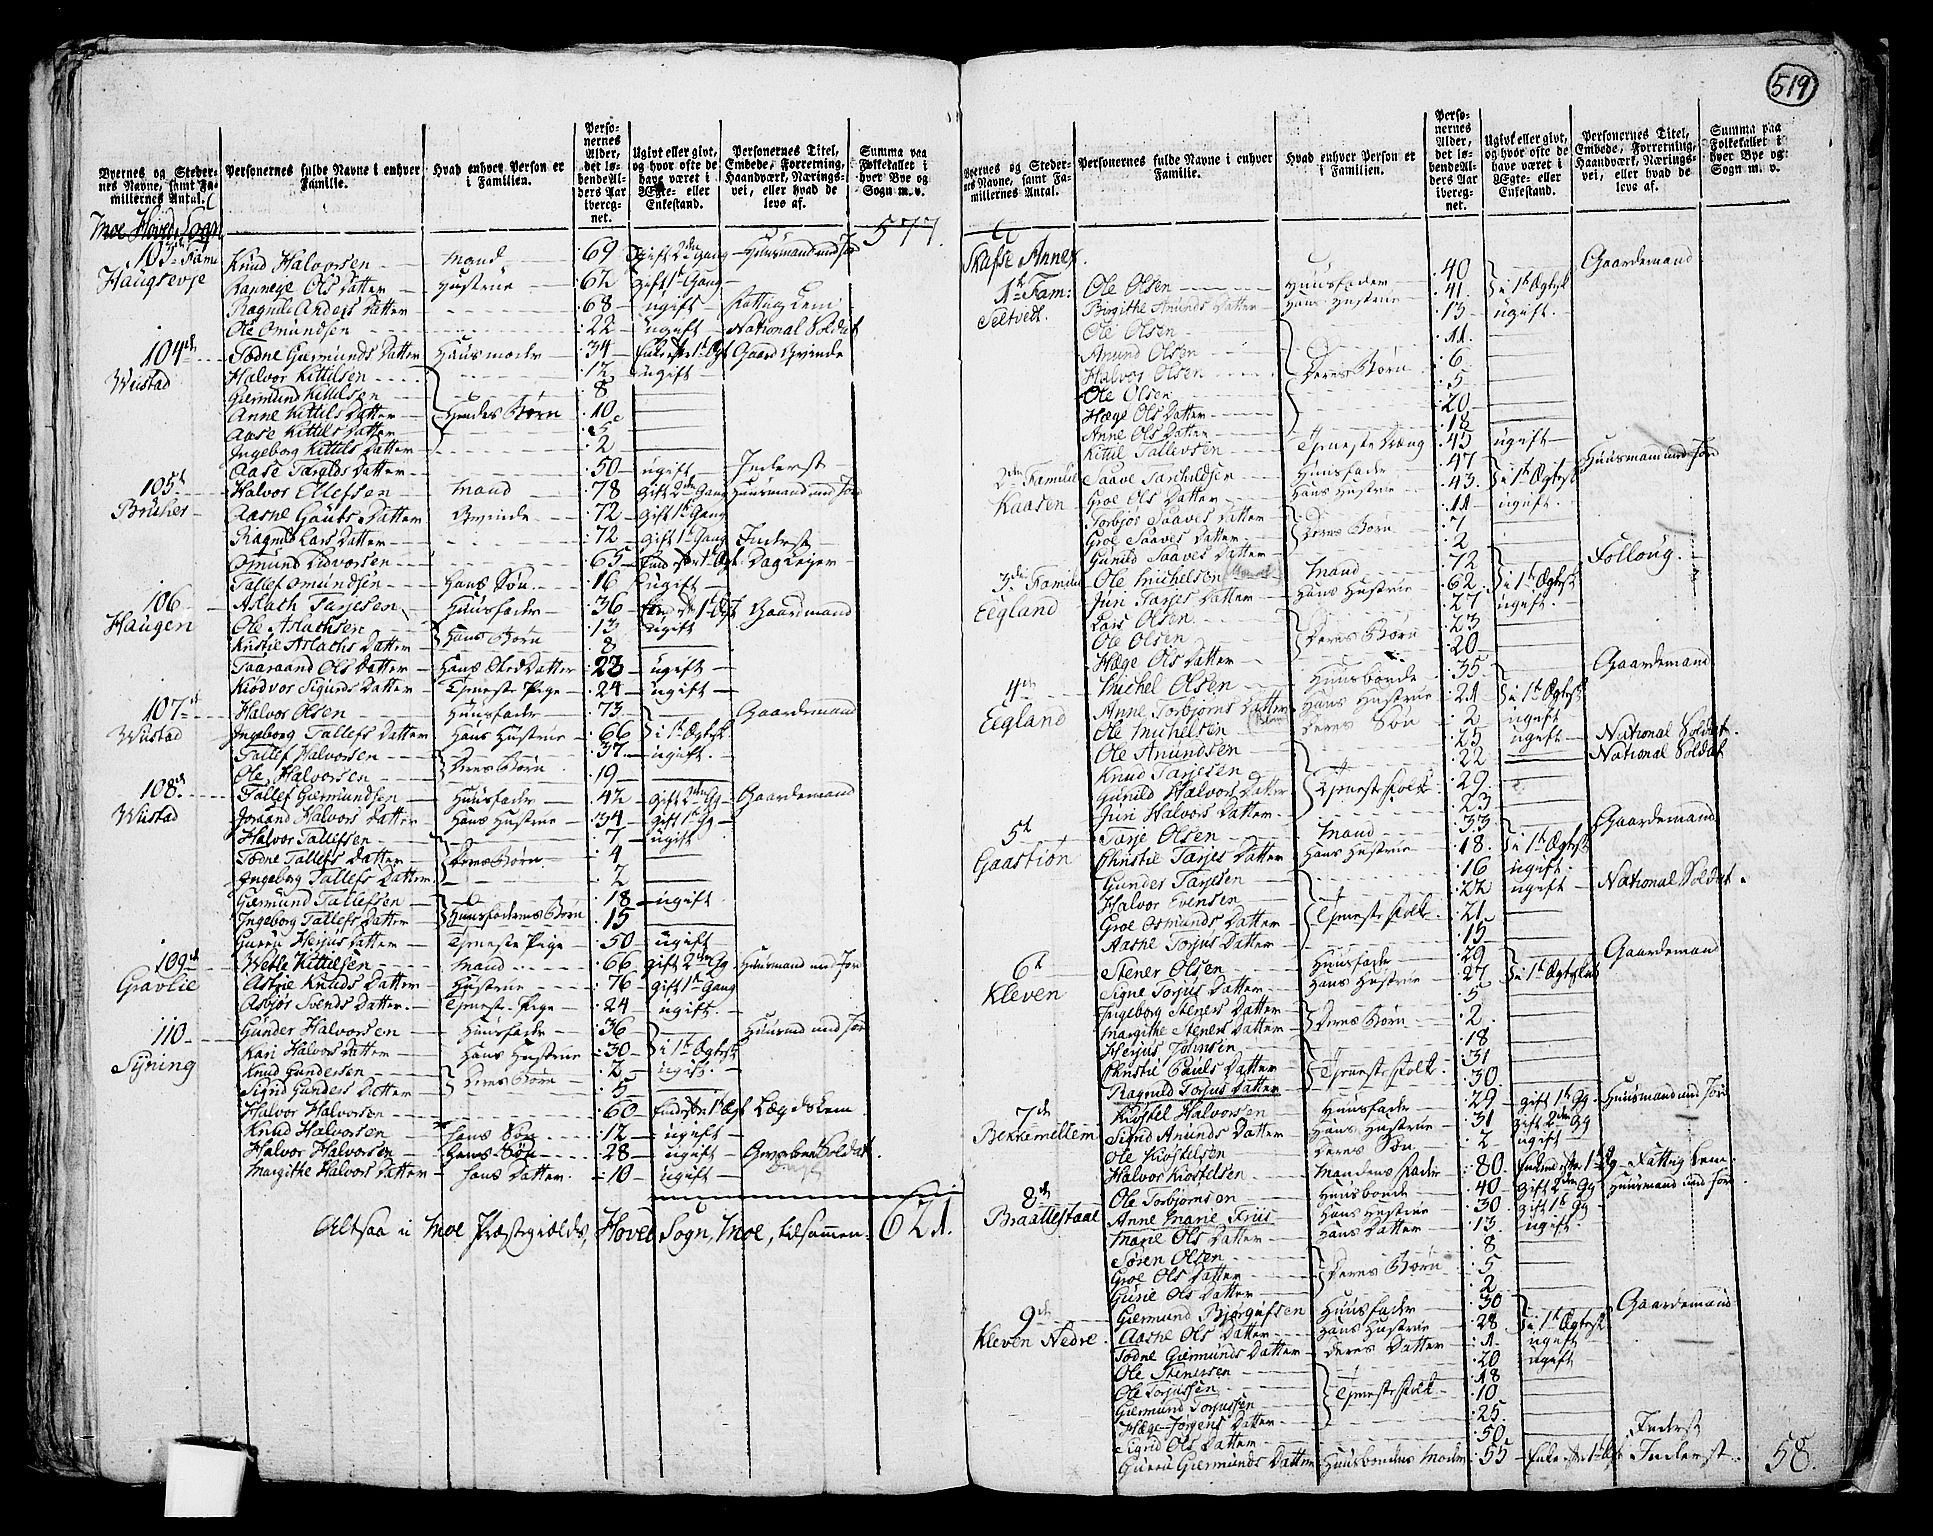 519
Byernes og Steder-
nes Navne, samt Fa-
millernes Antal.
Personernes fulde Navne i enhver
Familie.
Hvad enhver Person er
i Familien.
Perso-
nernes
Alder,
det lø-
bende Al-
ders Aar
iberegnet.
Ugivt eller givt,
og hvor ofte de
have været i
Ægte- eller
Enkestand.
Personernes Titel,
Embede, Forretning,
Haandværk, Nærings-
vei, eller hvad de
leve af.
Summa paa
Folketallet i
hver Bye og
Sogn m. v.
Moe Hoved Sogn 577.
103de Fam: Knud Halvorsen Mand 69 Gift 2den Gang Huusmand med Jord
Haugsevje Ols Datter Hustrue 62 Gift 1te Gang
Ragnild Anders Datter 68 ugift Fattig Lem
Ole Omundsen 22 ugift National Soldat
104de Todne Giermunds Datter Huusmoder 34 Enke efter 1te Ægt Gaard Qvinde
Wustad Halvor Kittilsen 12 ugift
Giermund Kittilsen 8
Anne Kittils Datter Hendes Børn 10
Aase Kittils Datter 5
Ingeborg Kittils Datter 2
Aase Taralds Datter 50 ugift Inderst
105te Halvor Ellefsen Mand 78 Gift 2den Gang Huusmand med Jord
Bruher Aasne Gauts Datter Qvinde 72 Gift 1te Gang
Ragnild Lars Datter 72 Gift 1te Gang Inderst
Omund Lidvorsen 65 Dagleyer
Tallef Omundsen Hans Søn 16 ugift
106 Aslach Tarjesen Huusfader 36 Gaardmand
Haugen Ole Aslachsen Hans Børn 13 ugift
Kristie Aslachs Datter 8
Taaraand Ols Datter Hans Sted Datter 23 ugift
Kiodvor Sigurds Datter Tjeneste Pige 24 ugift
107de Halvor Olsen Huusfader 73 i 1te Ægtesk Gaardemand
Wustad Ingeborg Tallefs Datter Hans Hustrue 66
Tallef Halvorsen Deres Børn 37 ugift.
Ole Halvorsen 19
108de Tallef Giermundsen Huusfader 42 Gift 2den Gg Gaardemand
Wustad Joraand Halvors Datter Hans Hustrue 34 Gift 1te Gg
Halvor Tallefsen 7 ugift
Todne Tallefs Datter Deres Børn 4
Ingeborg Tallefs Datter 2
Giermund Tallefsen Huusfaderens Børn 18 ugift
Ingeborg Tallefs Datter 15
Gurru Herjus Datter Tjeneste Pige 50 ugift
109de Wetle Kittilsen Mand 66 Gift 2den Gg Huusmand med Jor
Gravlie Astrie Knuds Datter Hustrue 76 Gift 1te Gang
Asbjør Svends Datter Tjeneste Pige 24 ugift.
110 Gunder Halvorsen Huusfader 36 i 1te Ægtesk Huusmd med Jor
Syning Kari Halvors Datter Hans Hustrue 30
Knud Gundersen Deres Børn 2 ugift.
Sigrid Gunders Datter 5
Halvor Halvorsen 60 Lægdslem
Knud Halvorsen Hans Søn 12 ugift
Halvor Halvorsen Hans Søn 28 ugift Gevorben Soldat.
Margithe Halvors Datter Hans Datter. 10 ugift
Altsaa i Moe Præstegields, Hoved Sogn, Moe, tilsammen: 621.
Byernes og Steder-
nes Navne, samt Fa-
millernes Antal.
Personernes fulde Navne i enhver
Familie.
Hvad enhver Person er
i Familien.
Perso-
nernes
Alder,
det lø-
bende Al-
ders Aar
iberegnet.
Ugivt eller givt,
og hvor ofte de
have været i
Ægte- eller
Enkestand.
Personernes Titel,
Embede, Forretning,
Haandværk, Nærings-
vei, eller hvad de
leve af.
Summa paa
Folketallet i
hver Bye og
Sogn m. v.
Skafse Annex.
1te Fam: Ole Olsen Huusfader 40 i 1te Ægtesk Gaardemand
Seltvedt. Birgithe Anunds Datter Hans Hustrue 41
Ole Olsen 13 ugift.
Anund Olsen 11
Halvor Olsen Deres Børn 6
Ole Olsen 5
Hæge Ols Datter 20
Anne Ols Datter 18
Kittil Tallevsen Tjeneste Dræng 45 ugift
2den Familie Saave Tarchildsen Huusfader 47 i 1te Ægtesk Huusmand med Jord
Kaasen Groe Ols Datter Hans Hustrue 43
Torbjør Saaves Datter 11 ugift.
Groe Saaves Datter Deres Børn 7
Gunild Saaves Datter 2
3de Familie Ole Michelsen Mand 72 i 1te Ægtesk Folloug.
Eegland Juri Tarjes Datter Hans Hustrue 62
Lars Olsen 27 ugift.
Ole Olsen Deres Børn 23
Hæge Ols Datter 20
4de Michel Olsen Huusbonde 35 i 1te Ægtesk Gaardemand
Eegland Anne Torbjørns Datter Hans Hustrue 21
Ole Michelsen Deres Søn 2 ugift
Ole Anundsen 25 ugift National Soldat.
Knud Tarjesen 22 National Soldat
Gunild Halvors Datter Tjeneste Folk 29
Juri Halvors Datter 23
5te Tarje Olsen Mand 33 i 1te Ægtesk Gaardemand
Gaastion Christie Tarjes Datter Hans Hustrue 18
Gunder Tarjesen 16 ugift
Halvor Evensen 22 ugift National Soldat.
Groe Osmunds Datter Tjeneste Folk 21
Aashe Torjus Datter 15
6te Stener Olsen Huusfader 29 i 1te Ægteskab Gaardemand
Kleven Signe Torjus Datter Hans Hustrue 27
Ingeborg Steners Datter Deres Børn 5
Margithe Steners Datter 2
Herjus Johnsen 18
Christie Pauls Datter Tjeneste Folk 31
Ragnild Torjus Datter 30
7de Kiostel Halvorsen Huusfader 29 Gift 1te Gg Huusmand med Jord
Bekkemellem Sigrid Anunds Datter Hans Hustrue 31 Gift 2den Gg
Ole Kiostelsen Deres Søn 2 ugift
Halvor Kiostelsen Mandens Fader 80 Fattig Lem.
8de Ole Torbjørnsen Huusbonde 40 Gift 2den Gg Huusmand med Jord
Braattestaal Anne Marie Friis Hans Hustrue 30 Gift 1te Gg
Marie Ols Datter Hans Datter 13 ugift
Søren Olsen 8
Groe Ols Datter Deres Børn 5
Gurie Ols Datter 2
9de Giermund Bjørgufsen Huusfader 30 i 1te Ægtesk Gaardemand
Kleven Nedre Aashe Ols Datter Hans Hustrue 28
Todne Giermunds Datter Deres Datter 1 ugift
Ole Stenersen 20 ugift
Ole Torjussen 18
Giermund Torjussen Tjeneste Folk 10
Hæge Jørgens Datter 25
Sigrid Ols Datter 50 Inderst
Gurru Giermunds Datter Huusbondens Moder 55 Enke efter 1te Ægt Inderst 58.